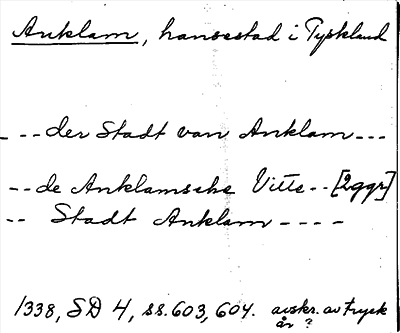 Anklam, hansestad i Tyskland
- -- der Stadt van Anklam ---
-- de Anklamsche Vitte -- [2ggr]
-- Stadt Anklam ----
1338, SD 4, ss. 603, 604. avskr. av tryck
år ?